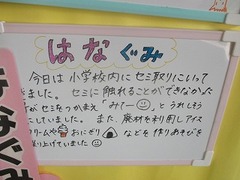 はなぐみ
今日は小学校内にセミ取りにいって
きました。セミに触れることができなかった
が セミをつかまえ「みてー」と うれしそう
にしていました。また、廃材を利用しアイス
クリームや おにぎり などを作りあそびを
り上げていました
はぐみ